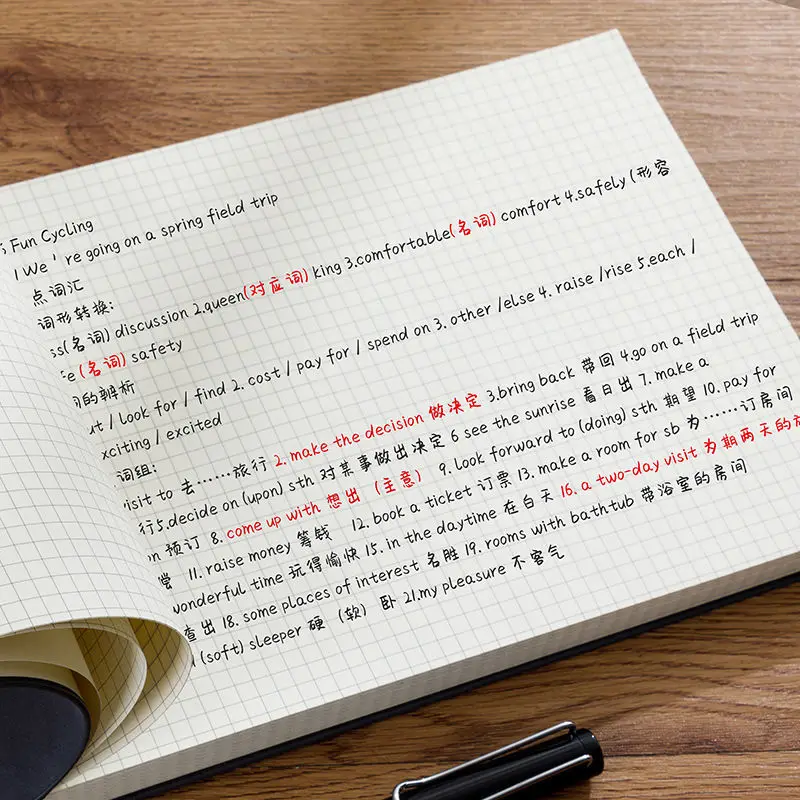 Fun Cycling
We're going on a spring field trip
点词汇
词形转换:
ss(名词) discussion 2.queen(对应词) king 3.comfortable(名词) comfort 4.safely (形容
e (名词) safety
的辨析
ut / look for / find 2. cost / pay for / spend on 3. other /else 4. raise /rise 5.each /
xciting / excited
词组:
visit to 去……旅行 2. make the decision 做决定 3.bring back 带回 4.go on a field trip
行5.decide on (upon) sth 对某事做出决定 6 see the sunrise 看日出 7. make a
on 预订 8. come up with 想出 (主意) 9. look forward to (doing) sth 期望 10. pay for
11. raise money 筹钱 12. book a ticket 订票 13. make a room for sb 为……订房间
wonderful time 玩得愉快 15. in the daytime 在白天 16. a two-day visit 为期两天的
查出 18. some places of interest 名胜 19. rooms with bathtub 带浴室的房间
(soft) sleeper 硬 (软) 卧 21.my pleasure 不客气